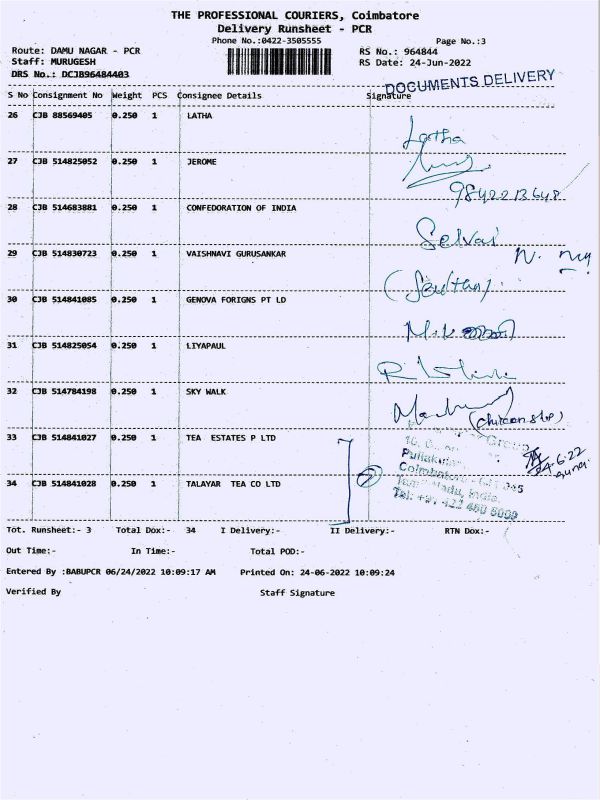 THE PROFESSIONAL COURIERS, Coimbatore
Delivery Runsheet - PCR
Phone No.:0422-3505555
Page No.:3
Route: DAMU NAGAR - PCR
RS No.: 964844
Staff: MURUGESH
RS Date: 24-Jun-2022
DRS No.: DCJB96484403
DOCUMENTS DELIVERY
S No Consignment No Weight PCS Consignee Details Signature
26 CJB 88569405 0.250 1 LATHA
Latha
27 CJB 514825052 0.250 1 JEROME
9842213648
28 CJB 514683881 0.250 1 CONFEDORATION OF INDIA
Selvai
29 CJB 514830723 0.250 1 VAISHNAVI GURUSANKAR
30 CJB 514841085 0.250 1 GENOVA FORIGNS PT LD
31 CJB 514825054 0.250 1 LIYAPAUL
32 CJB 514784198 0.250 1 SKY WALK
33 CJB 514841027 0.250 1 TEA ESTATES P LTD
Group
24.6.22
34 CJB 514841028 0.250 1 TALAYAR TEA CO LTD
Coimbatore
Tamil Nadu, India.
Tot. Runsheet:- 3 Total Dox:- 34 I Delivery:- II Delivery:- RTN Dox:-
Out Time:- In Time:- Total POD:-
Entered By :BABUPCR 06/24/2022 10:09:17 AM Printed On: 24-06-2022 10:09:24
Verified By Staff Signature